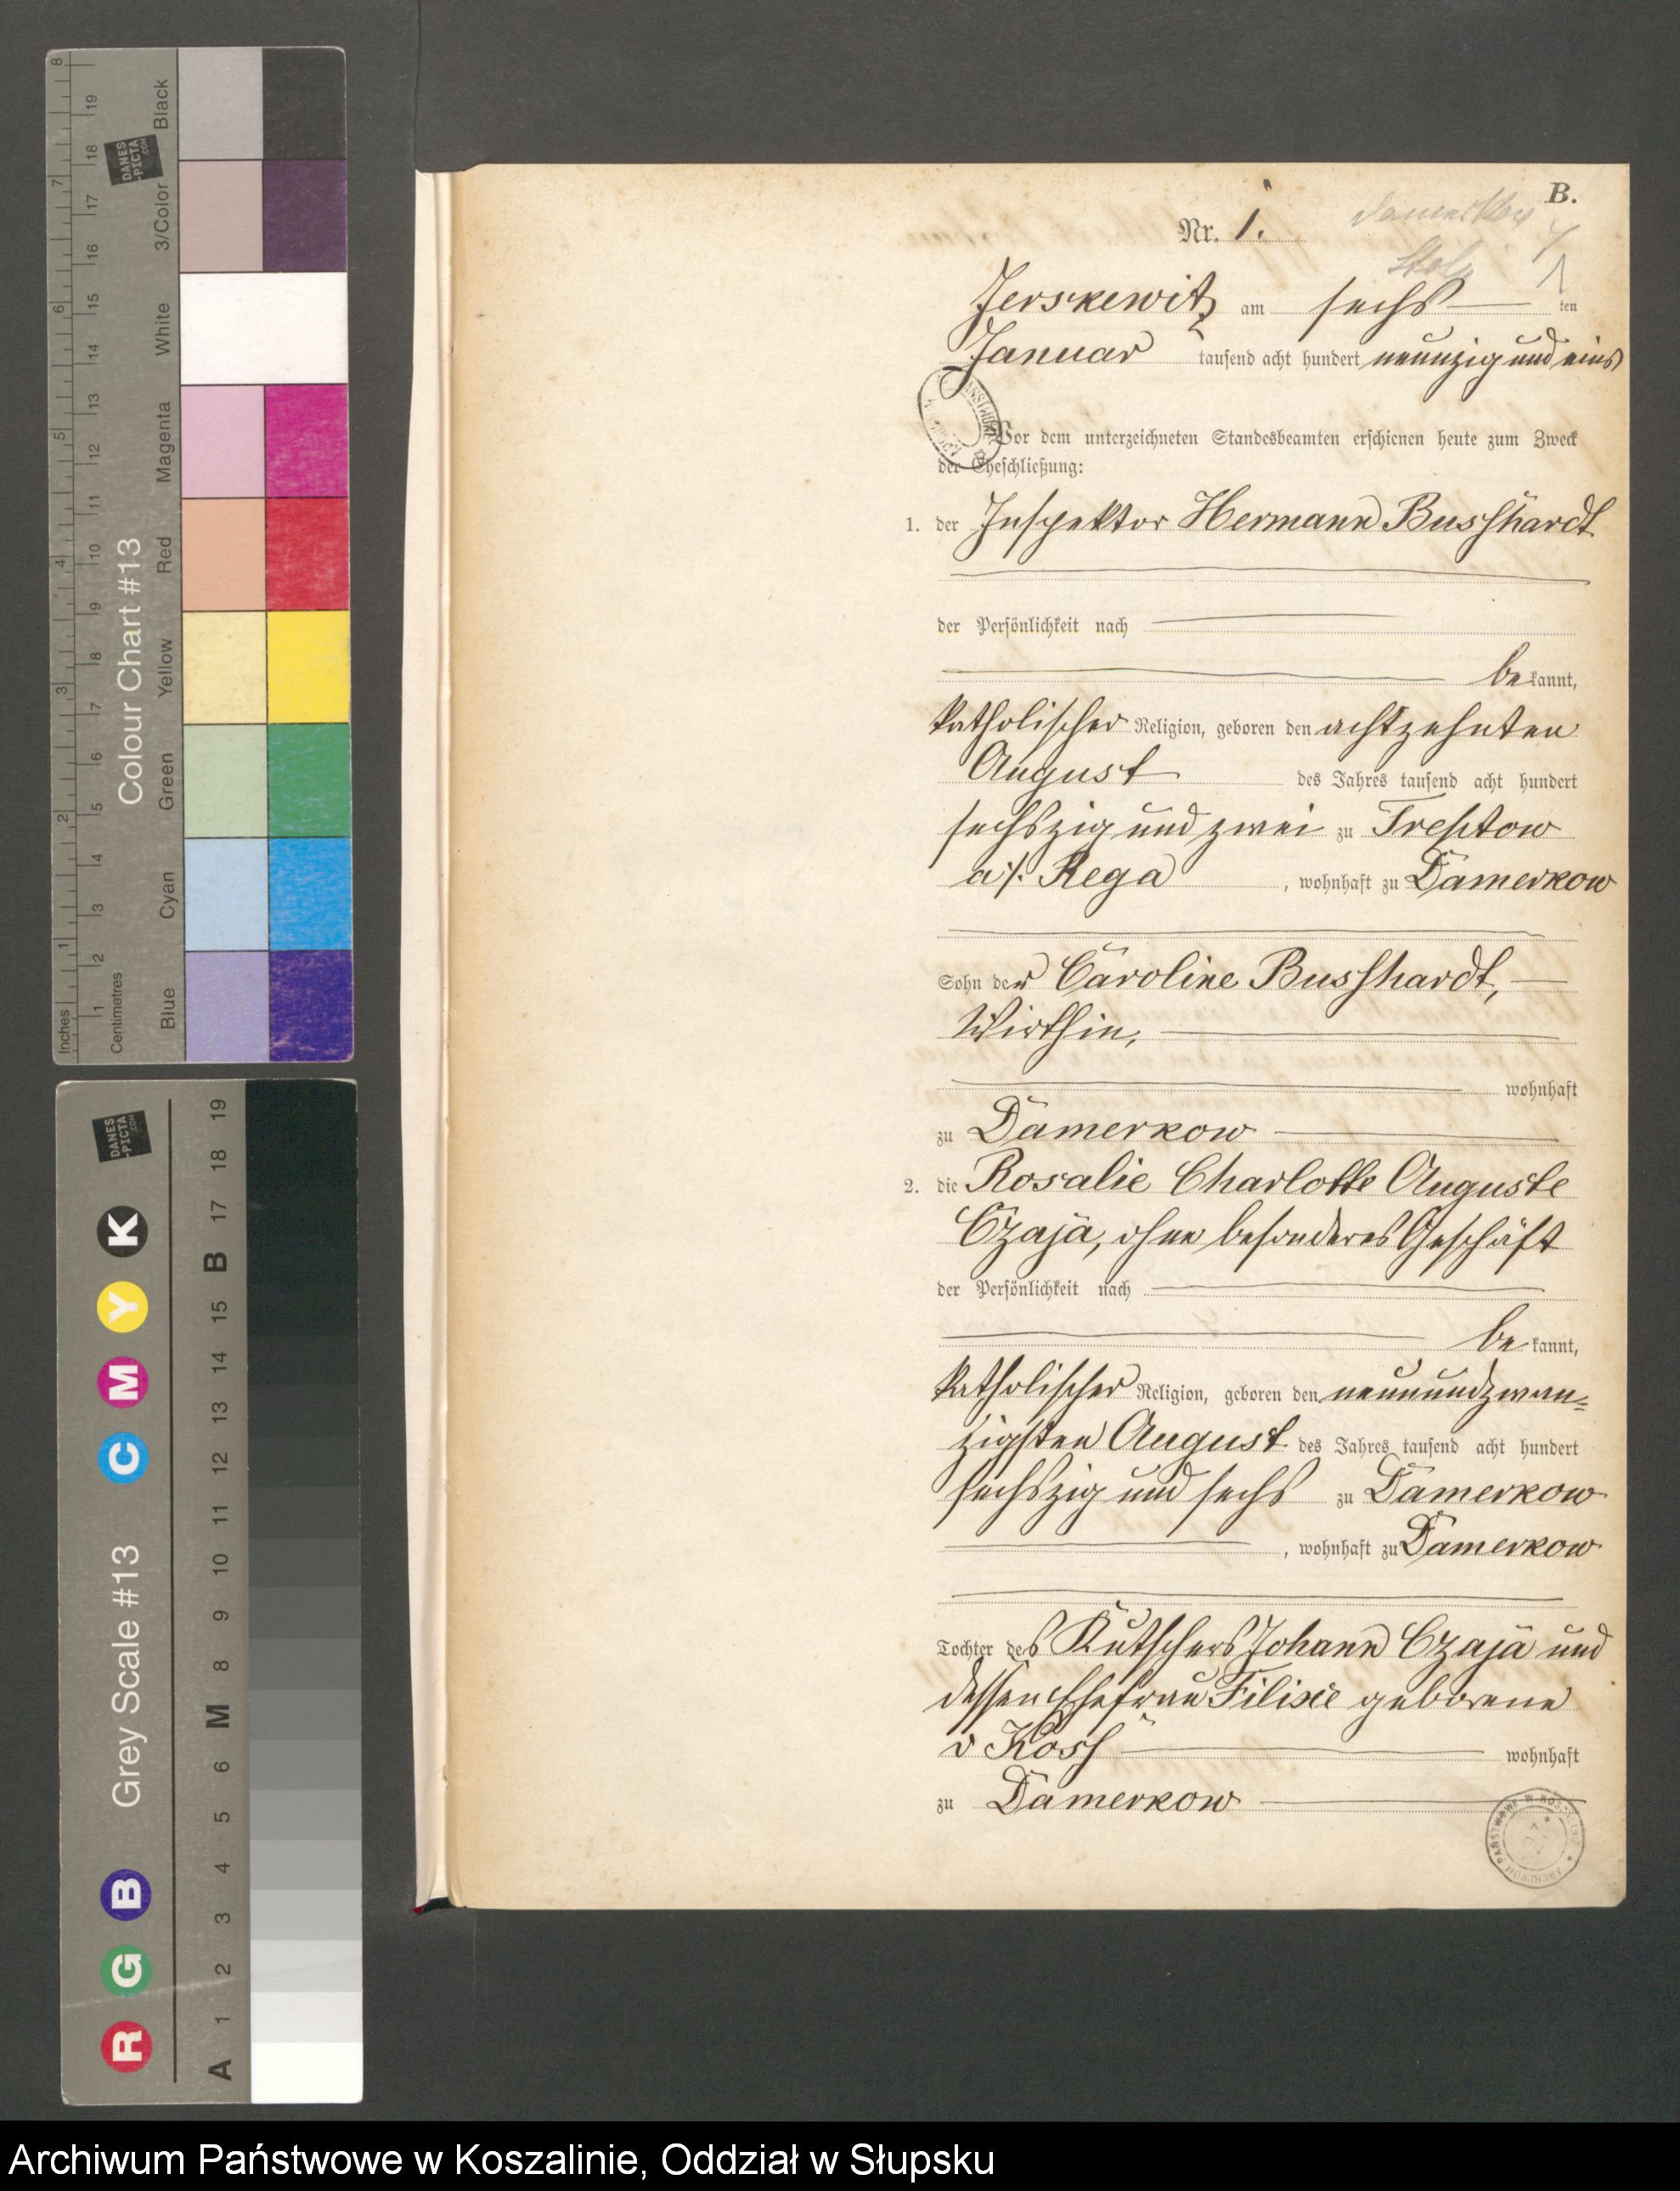 B.
Nr. 1.
Jerskewitz am sechs ten
Januar tausend acht hundert neunzig und eins
Vor dem unterzeichneten Standesbeamten erschienen heute zum Zweck
der Eheschließung:
1. der Inspektor Hermann Bushhardt
der Persönlichkeit nach
bekannt,
katholischer Religion, geboren den achtzehnten
August des Jahres tausend acht hundert
sechszig und zwei zu Treptow
a/. Rega, wohnhaft zu Damerkow
Sohn der Caroline Bushhardt,
Wirthin,
wohnhaft
zu Damerkow
2. die Rosalie Charlotte Auguste
Czaja, ohne besonderes Geschäft
der Persönlichkeit nach
bekannt,
katholischer Religion, geboren den neunundzwan=
zigsten August des Jahres tausend acht hundert
sechszig und sechs zu Damerkow
, wohnhaft zu Damerkow
Tochter des Kutschers Johann Czaja und
dessen Ehefrau Filixie geborene
v Koss wohnhaft
zu Damerkow
ARCHIWUM PAŃSTWOWE W KOSZALINIE
Inches 1 2 3 4 5 6 7 8
Centimetres 1 2 3 4 5 6 7 8 9 10 11 12 13 14 15 16 17 18 19
Colour Chart #13
Blue Cyan Green Yellow Red Magenta White 3/Color Black
DANES-PICTA.COM
Grey Scale #13
R G B C M Y K
A 1 2 3 4 5 6 M 8 9 10 11 12 13 14 15 B 17 18 19
DANES-PICTA.COM
Archiwum Państwowe w Koszalinie, Oddział w Słupsku